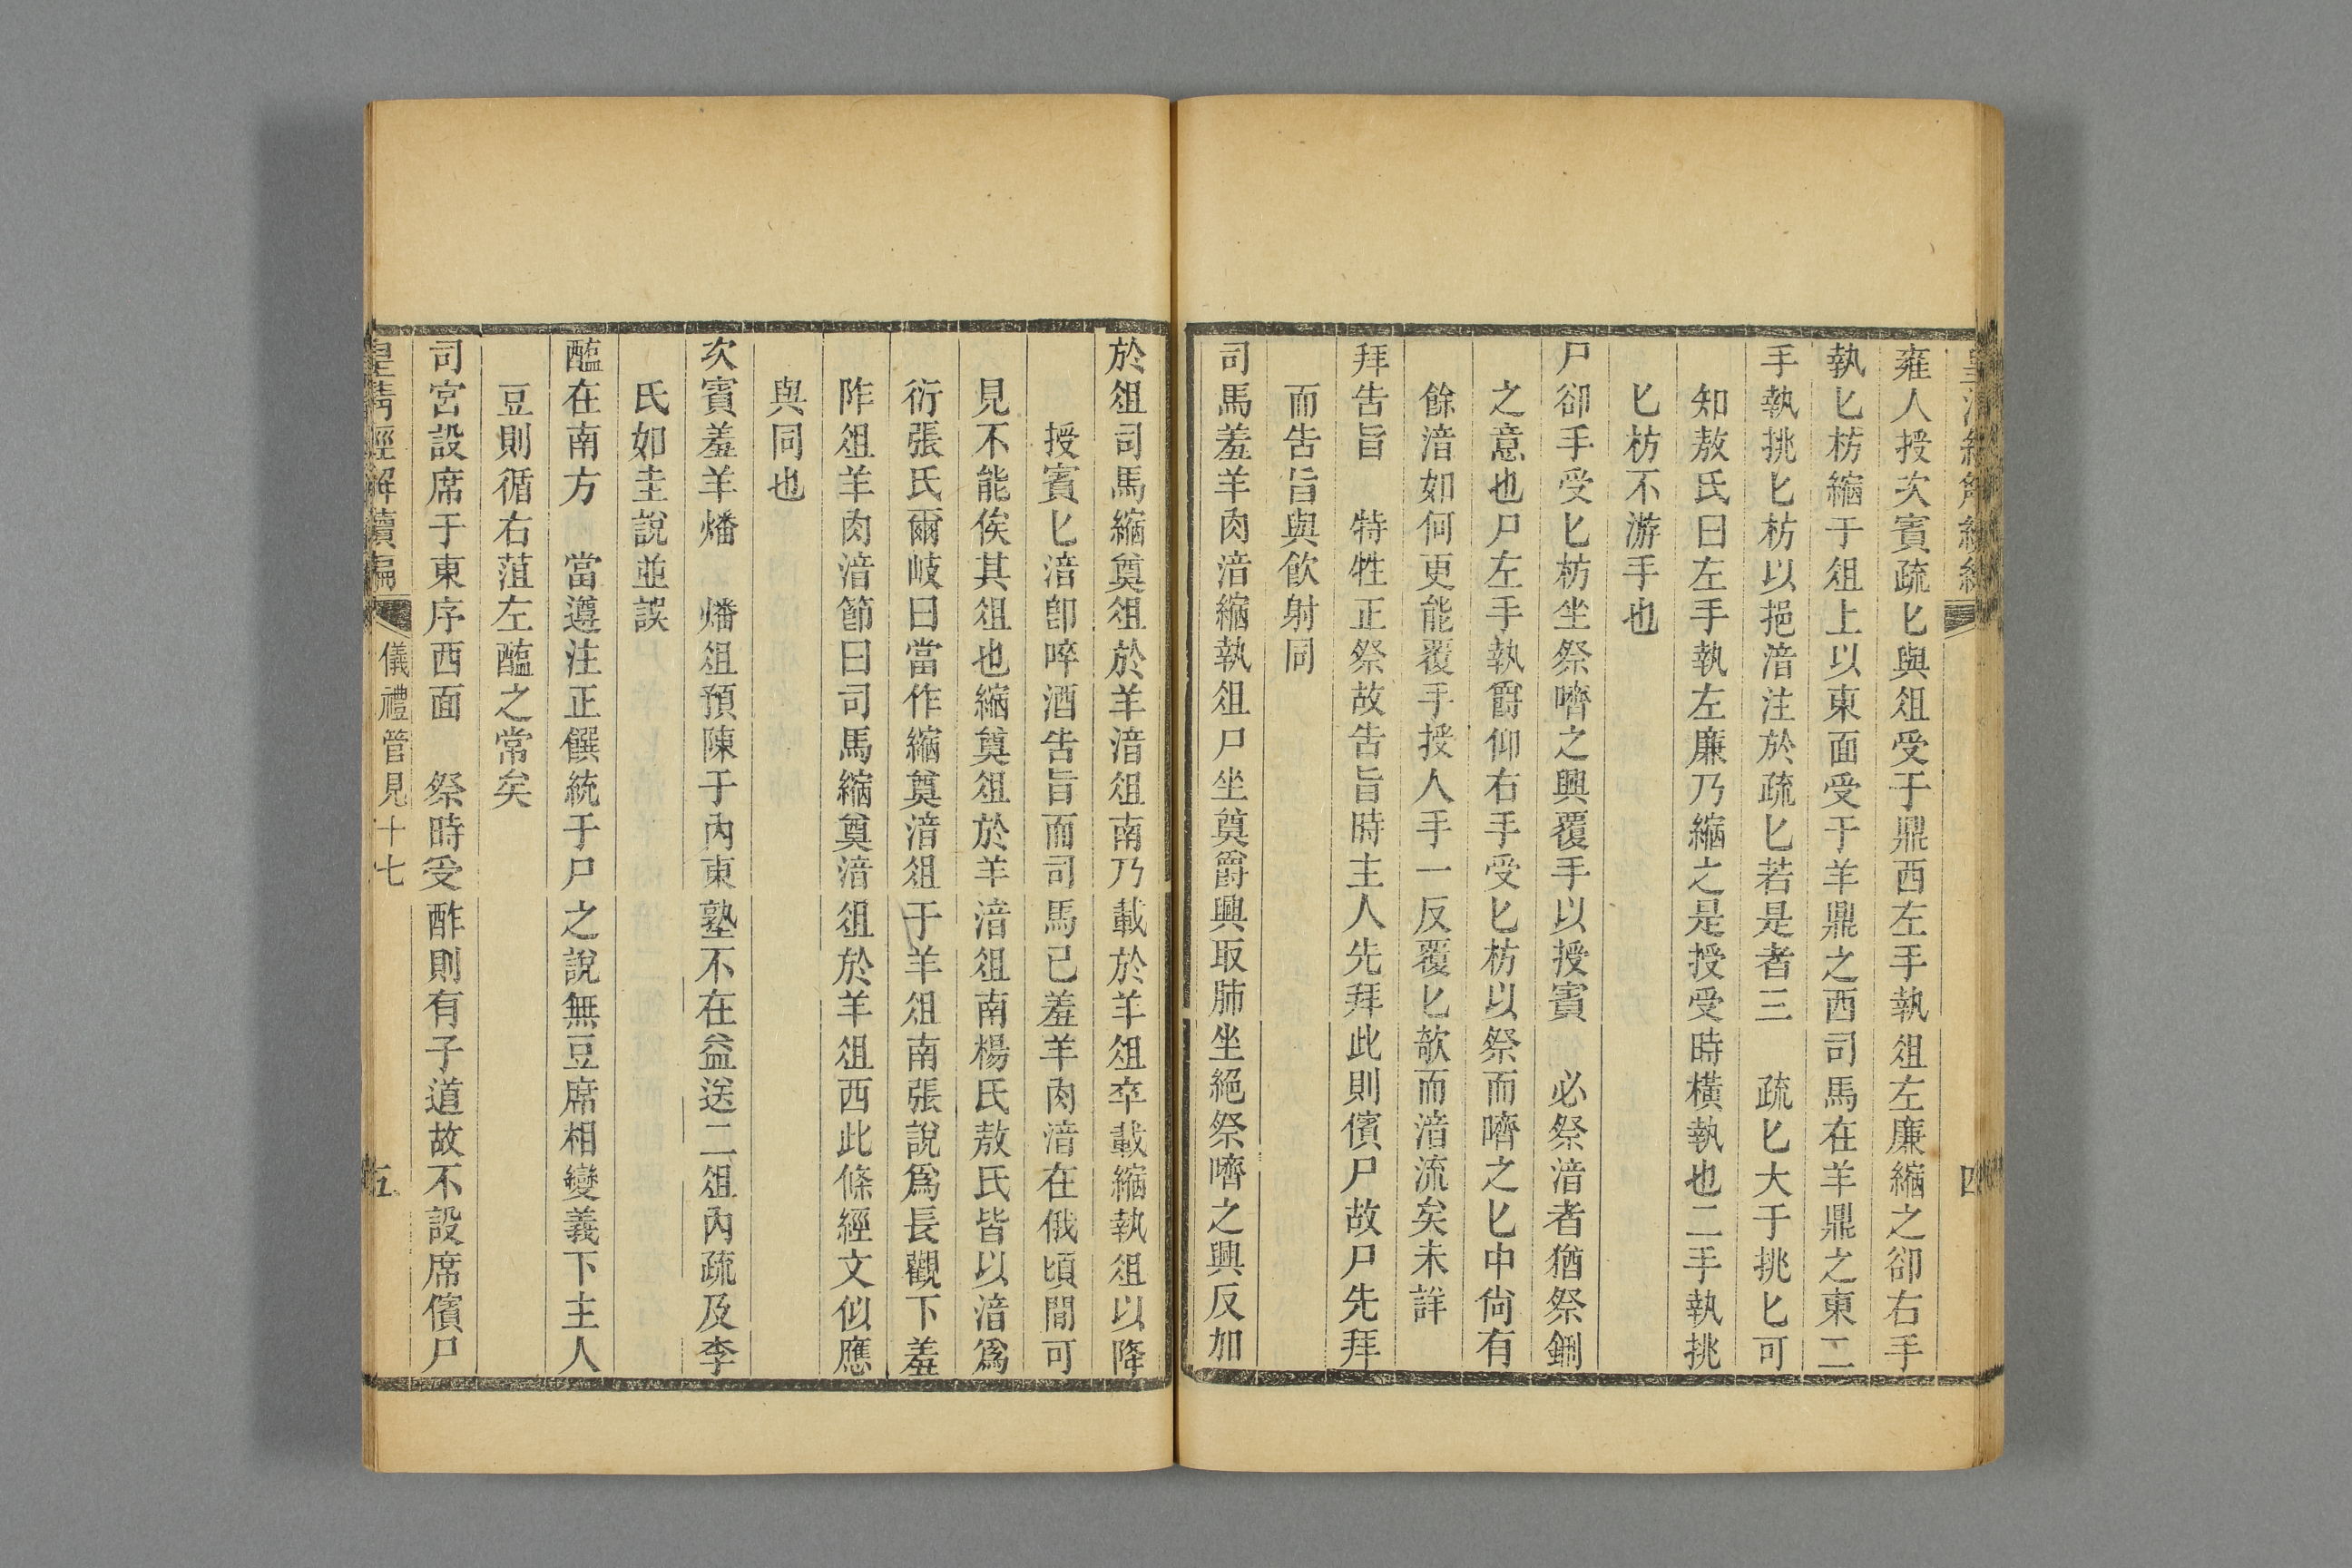 雍人授次賓疏匕與俎受于鼎西左手執俎左廉縮之卻右手
執匕枋縮于俎上以東面受于羊鼎之西司馬在羊鼎之東二
手執挑匕枋以挹湆注於疏匕若是者三　疏匕大于挑匕可
知敖氏曰左手執左廉乃縮之是授受時橫執也二手執挑
匕枋不游手也
尸卻手受匕枋坐祭嚌之興覆手以授賓　必祭湆者猶祭鉶
之意也尸左手執爵仰右手受匕枋以祭而嚌之匕中尙有
餘湆如何更能覆手授人手一反覆匕欹而湆流矣未詳
拜告旨　特牲正祭故告旨時主人先拜此則儐尸故尸先拜
而告旨與飮射同
司馬羞羊肉湆縮執俎尸坐奠爵興取肺坐絕祭嚌之興反加
四
於俎司馬縮奠俎於羊湆俎南乃載於羊俎卒載縮執俎以降
授賓匕湆卽啐酒告旨而司馬已羞羊肉湆在俄頃閒可
見不能俟其俎也縮奠俎於羊湆俎南楊氏敖氏皆以湆爲
衍張氏爾岐曰當作縮奠湆俎于羊俎南張說爲長觀下羞
阼俎羊肉湆節曰司馬縮奠湆俎於羊俎西此條經文似應
與同也
次賓羞羊燔　燔俎預陳于內東塾不在益送二俎內疏及李
氏如圭說並誤
醢在南方　當遵注正饌統于尸之說無豆席相變義下主人
豆則循右菹左醢之常矣
司宮設席于東序西面　祭時受酢則有子道故不設席儐尸
皇淸經解續編　儀禮管見十七　五